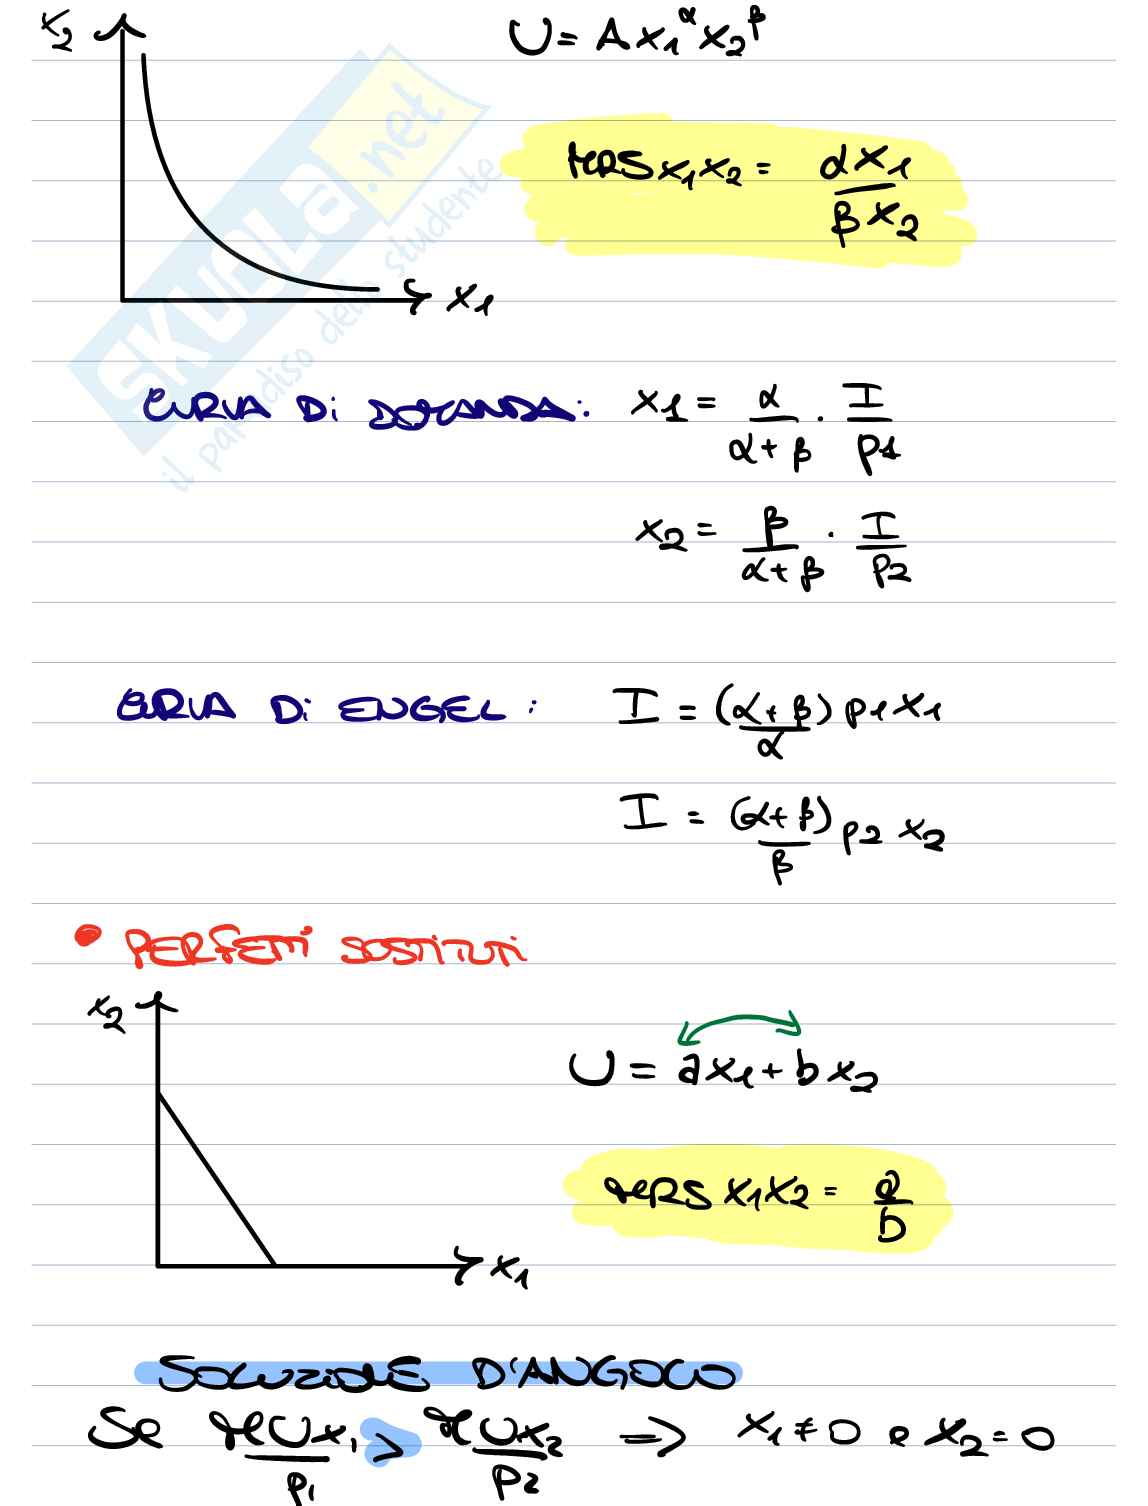 x2
U = A x1^α x2^β
SKUOLA.net
il paradiso dello studente
MRS x1x2 = αx1 / βx2
x1
CURVA Di DOMANDA: x1 = α/(α+β) · I/p1
x2 = β/(α+β) · I/p2
CURVA Di ENGEL: I = (α+β)/α p1x1
I = (α+β)/β p2 x2
• PERFETTi SOSTiTUTi
x2
U = ax1 + bx2
MRS x1x2 = a/b
x1
SOLUZiONE D'ANGOLO
Se MUx1/p1 > MUx2/p2 => x1 ≠ 0 e x2 = 0